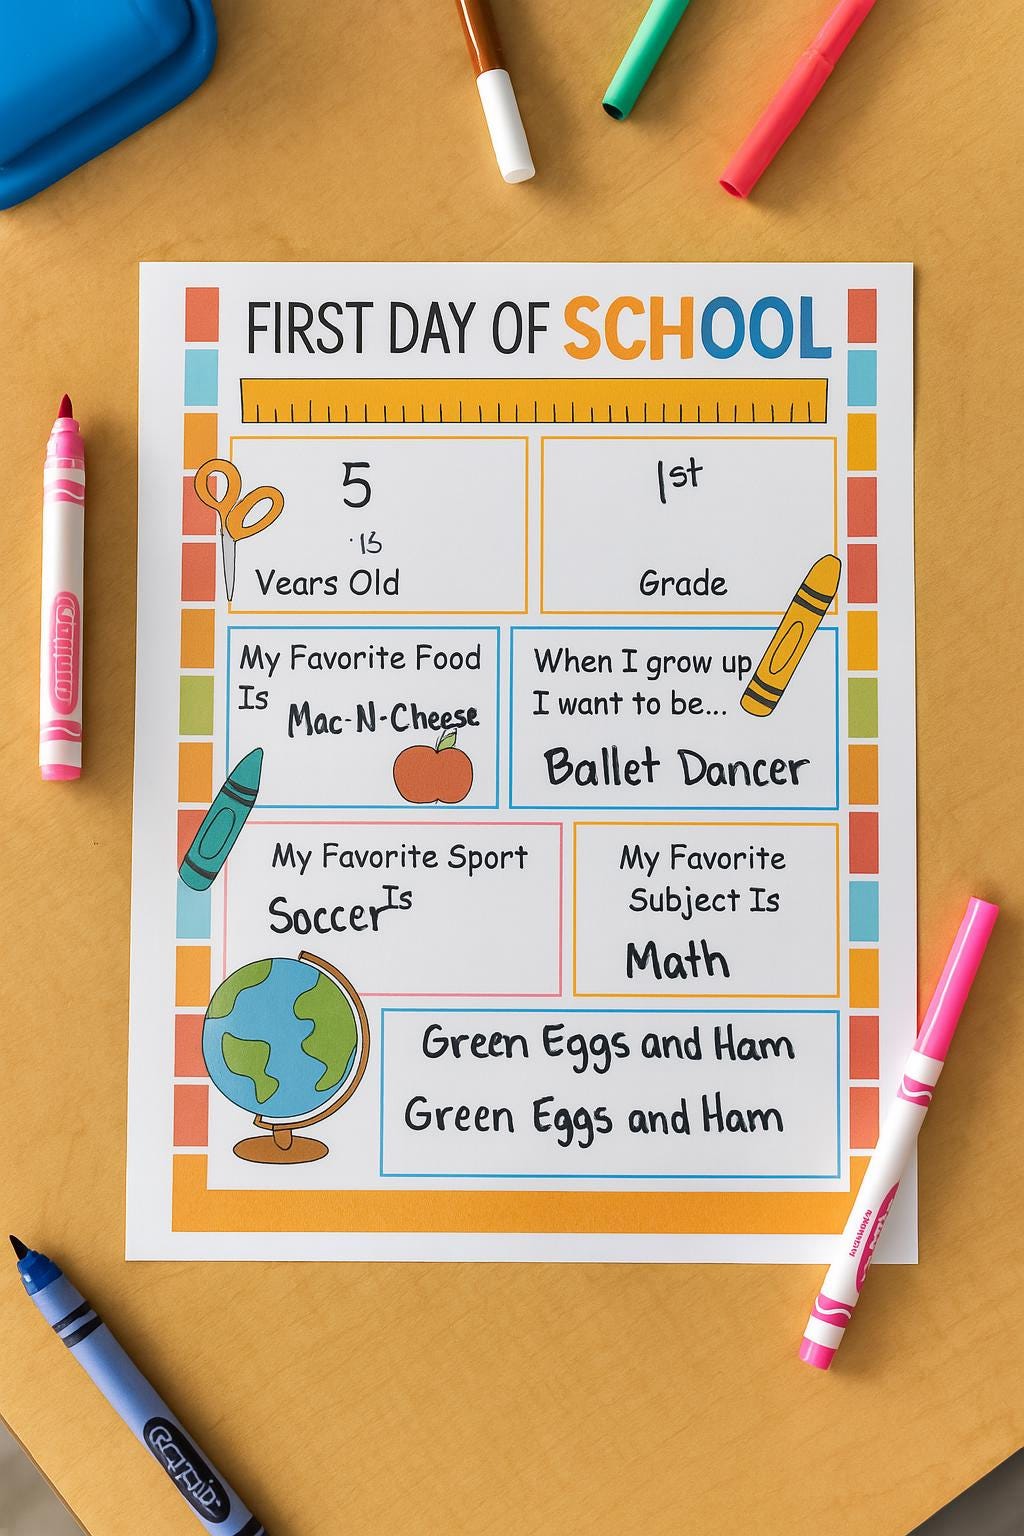 FIRST DAY OF SCHOOL
5
1st
Vears Old
Grade
My Favorite Food
Is
Mac-N-Cheese
When I grow up
I want to be...
Ballet Dancer
My Favorite Sport
Is
Soccer
My Favorite
Subject Is
Math
Green Eggs and Ham
Green Eggs and Ham